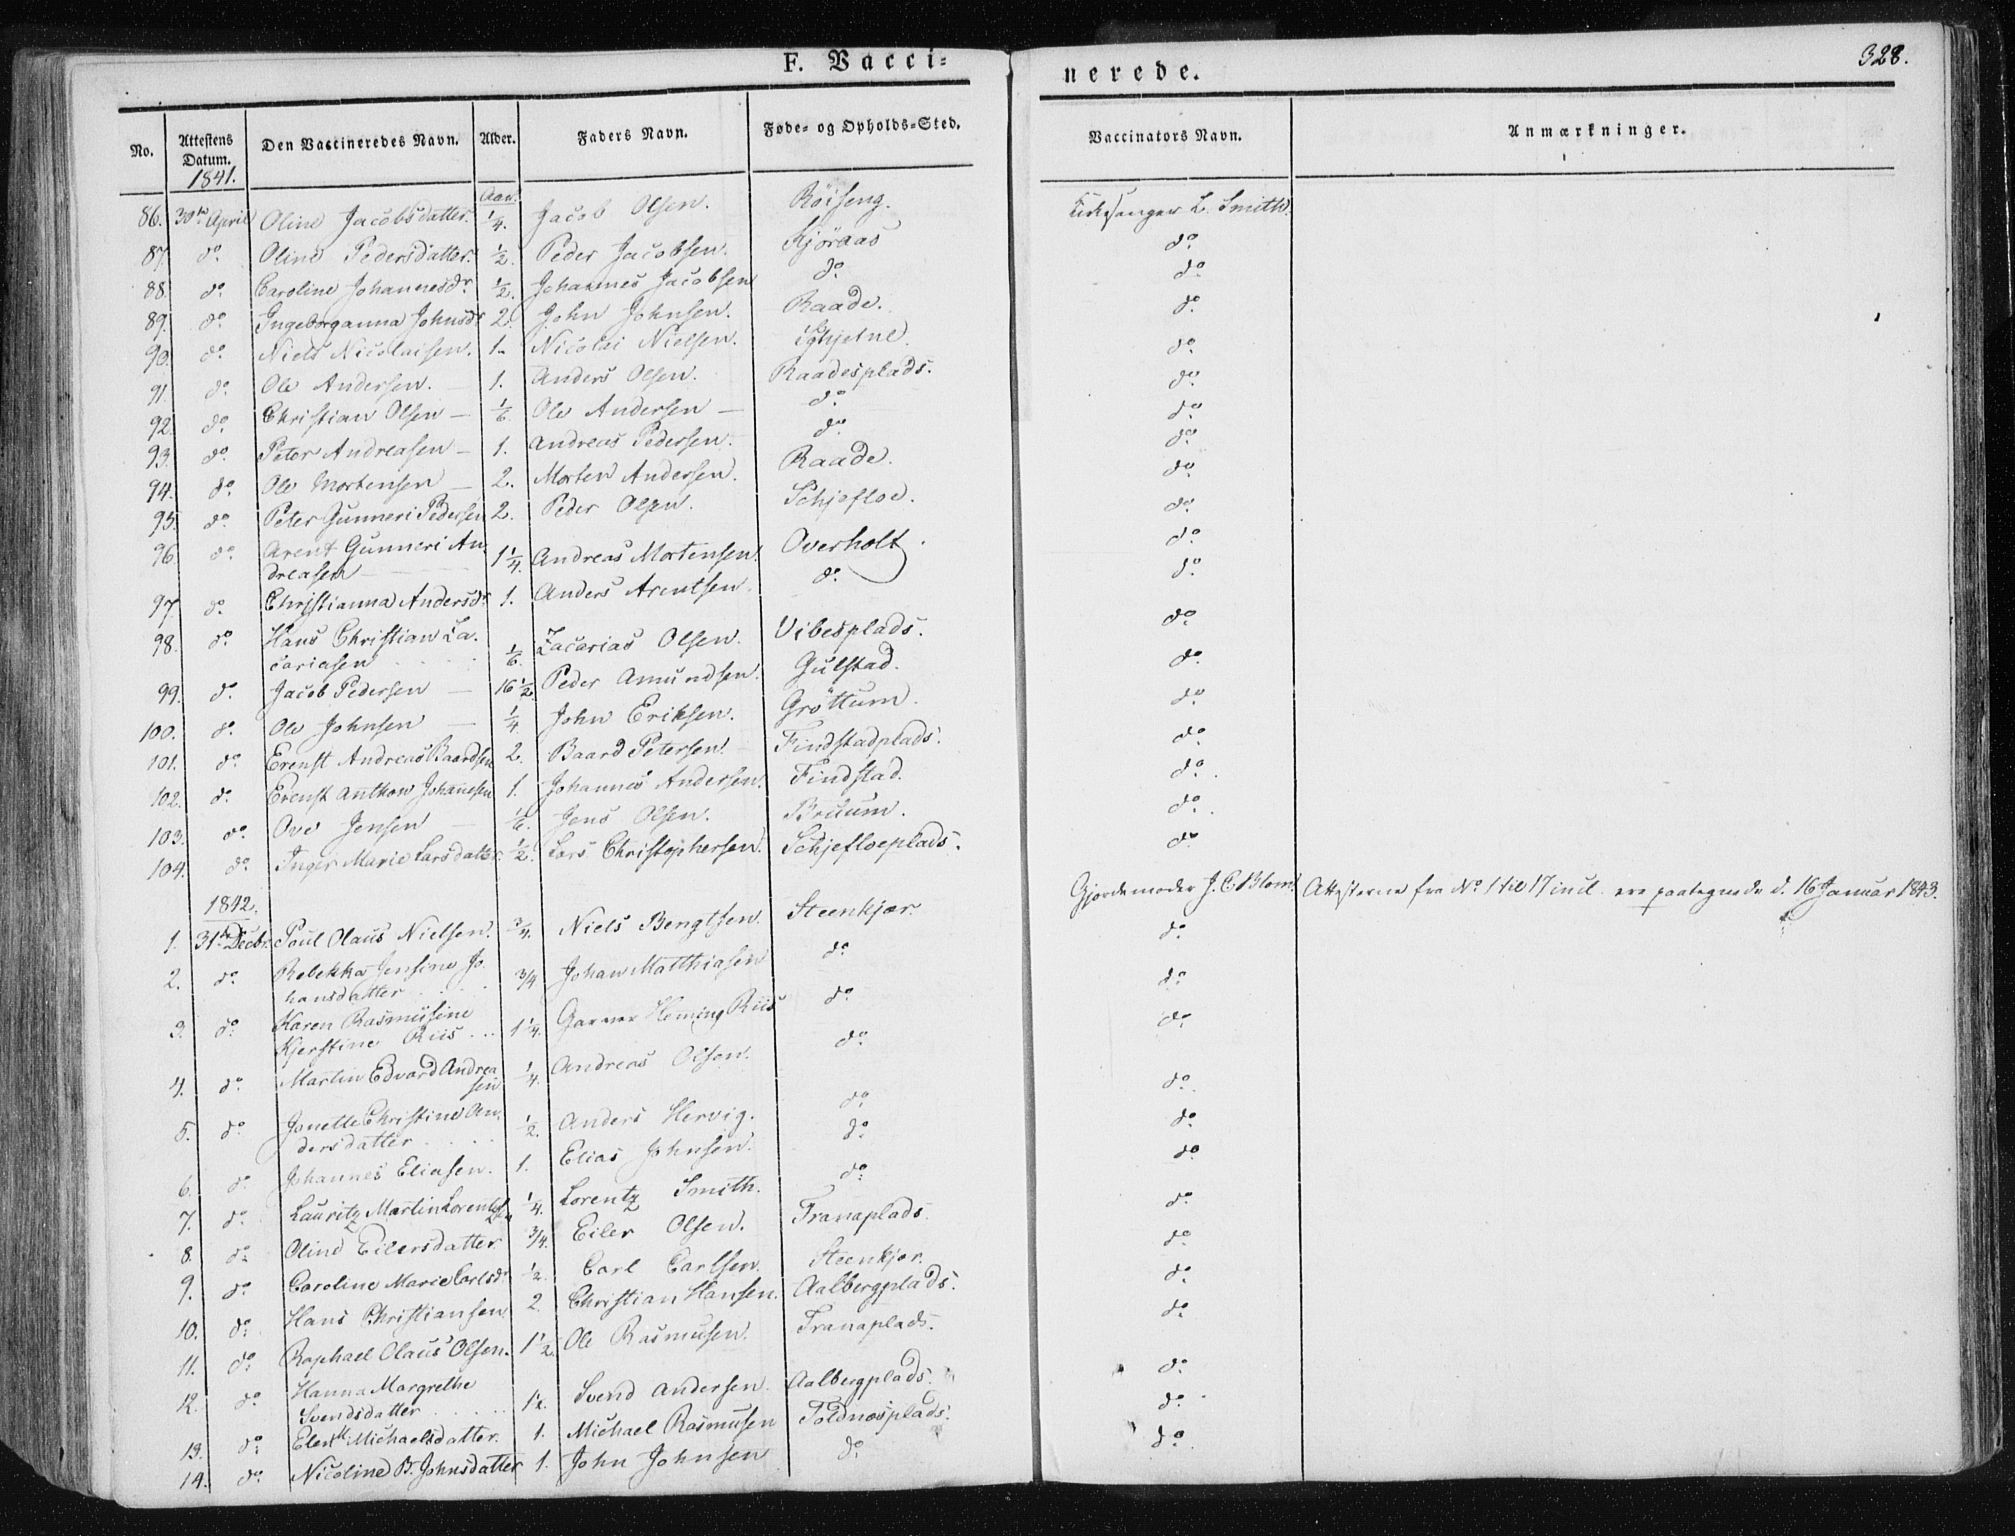 F. Vacci=
nerede.
328.
No.
Attestens Datum.
Den Vaccineredes Navn.
Alder.
Faders Navn.
Føde- og Opholds-Sted.
Vaccinators Navn.
Anmærkninger.
1841.
Aar.
86. 30te April Oline Jacobsdatter. 1/4. Jacob Olsen. Röiseng. Kirkesanger L. Smith.
87. do. Oline Pedersdatter. 1/2. Peder Jacobsen. Kjöraas do.
88. do. Caroline Johannesdr. 1/2. Johannes Jacobsen do. do.
89. do. Ingeborganna Johnsdr. 2. John Johnsen. Raade. do.
90. do. Niels Nicolaisen. 1. Nicolai Nielsen. do.
91. do. Ole Andersen. 1. Anders Olsen. Raadesplads. do.
92. do. Christian Olsen 1/6 Ole Andersen do. do.
93. do. Peter Andreasen 1. Andreas Pedersen. do. do.
94. do. Ole Mortensen 2. Morten Andersen. Raade. do.
95. do. Peter Gunneri Pedersen 2. Peder Olsen. Schjefloe. do.
96. do. Arent Gunneri An-
dreasen 1 1/4. Andreas Mortensen. Overholt. do.
97. do. Christianna Andersdr. 1. Anders Arentsen. do. do.
98. do. Hans Christian Za-
cariasen 1/6. Zacarias Olsen. Vibesplads. do.
99. do. Jacob Pedersen 16 1/2 Peder Amundsen. Gulstad. do.
100. do. Ole Johnsen 1/4 John Eriksen. Gröttum. do.
101. do. Erenst Andreas Baardsen 2. Baard Petersen. Findstadplads. do.
102. do. Erenst Anthon Johanesen 1. Johannes Andersen. Findstad. do.
103. do. Ove Jensen 1/6. Jens Olsen. Bruum. do.
104. do. Inger Marie Larsdatter. 1/2. Lars Christophersen. Schjefloeplads. do.
1842.
1. 31te Decbr. Poul Olaus Nielsen. 3/4. Niels Bengtsen. Steenkjær. Gjordemoder J. C. Blom. Attesterne fra No 1 til 17 incl. ere paategnede d. 16 Januar 1843.
2. do. Rebekka Jensine Jo-
hansdatter 3/4 Johan Matthiasen do. do.
3. do. Karen Rasmusine
Kjerstine Riis 1 1/4. Garver Heming Riis do. do.
4. do. Martin Edvard Andrea
sen 1/4. Andreas Olsen. do. do.
5. do. Jonette Christine An-
dersdatter 1/2. Anders Hervig. do. do.
6. do. Johannes Eliasen. 1. Elias Johnsen. do. do.
7. do. Lauritz Martin Lorentzsen 1/4. Lorentz Smith. do. do.
8. do. Oline Eilersdatter 3/4. Eiler Olsen. Tranaplads. do.
9. do. Caroline Marie Carlsdr. 1/2. Carl Carlsen. Steenkjær. do.
10. do. Hans Christiansen 2. Christian Hansen. Aalbergplads. do.
11. do. Raphael Olaus Olsen. 1 1/2. Ole Rasmusen. Tranaplads. do.
12. do. Hanna Margrethe
Svendsdatter 1/2. Svend Andersen. Aalbergplads. do.
13. do. Elen M. Michaelsdatter. 1. Michael Rasmusen Toldnæsplads. do.
14. do. Nicoline B. Johnsdatter 1. John Johnsen do. do.